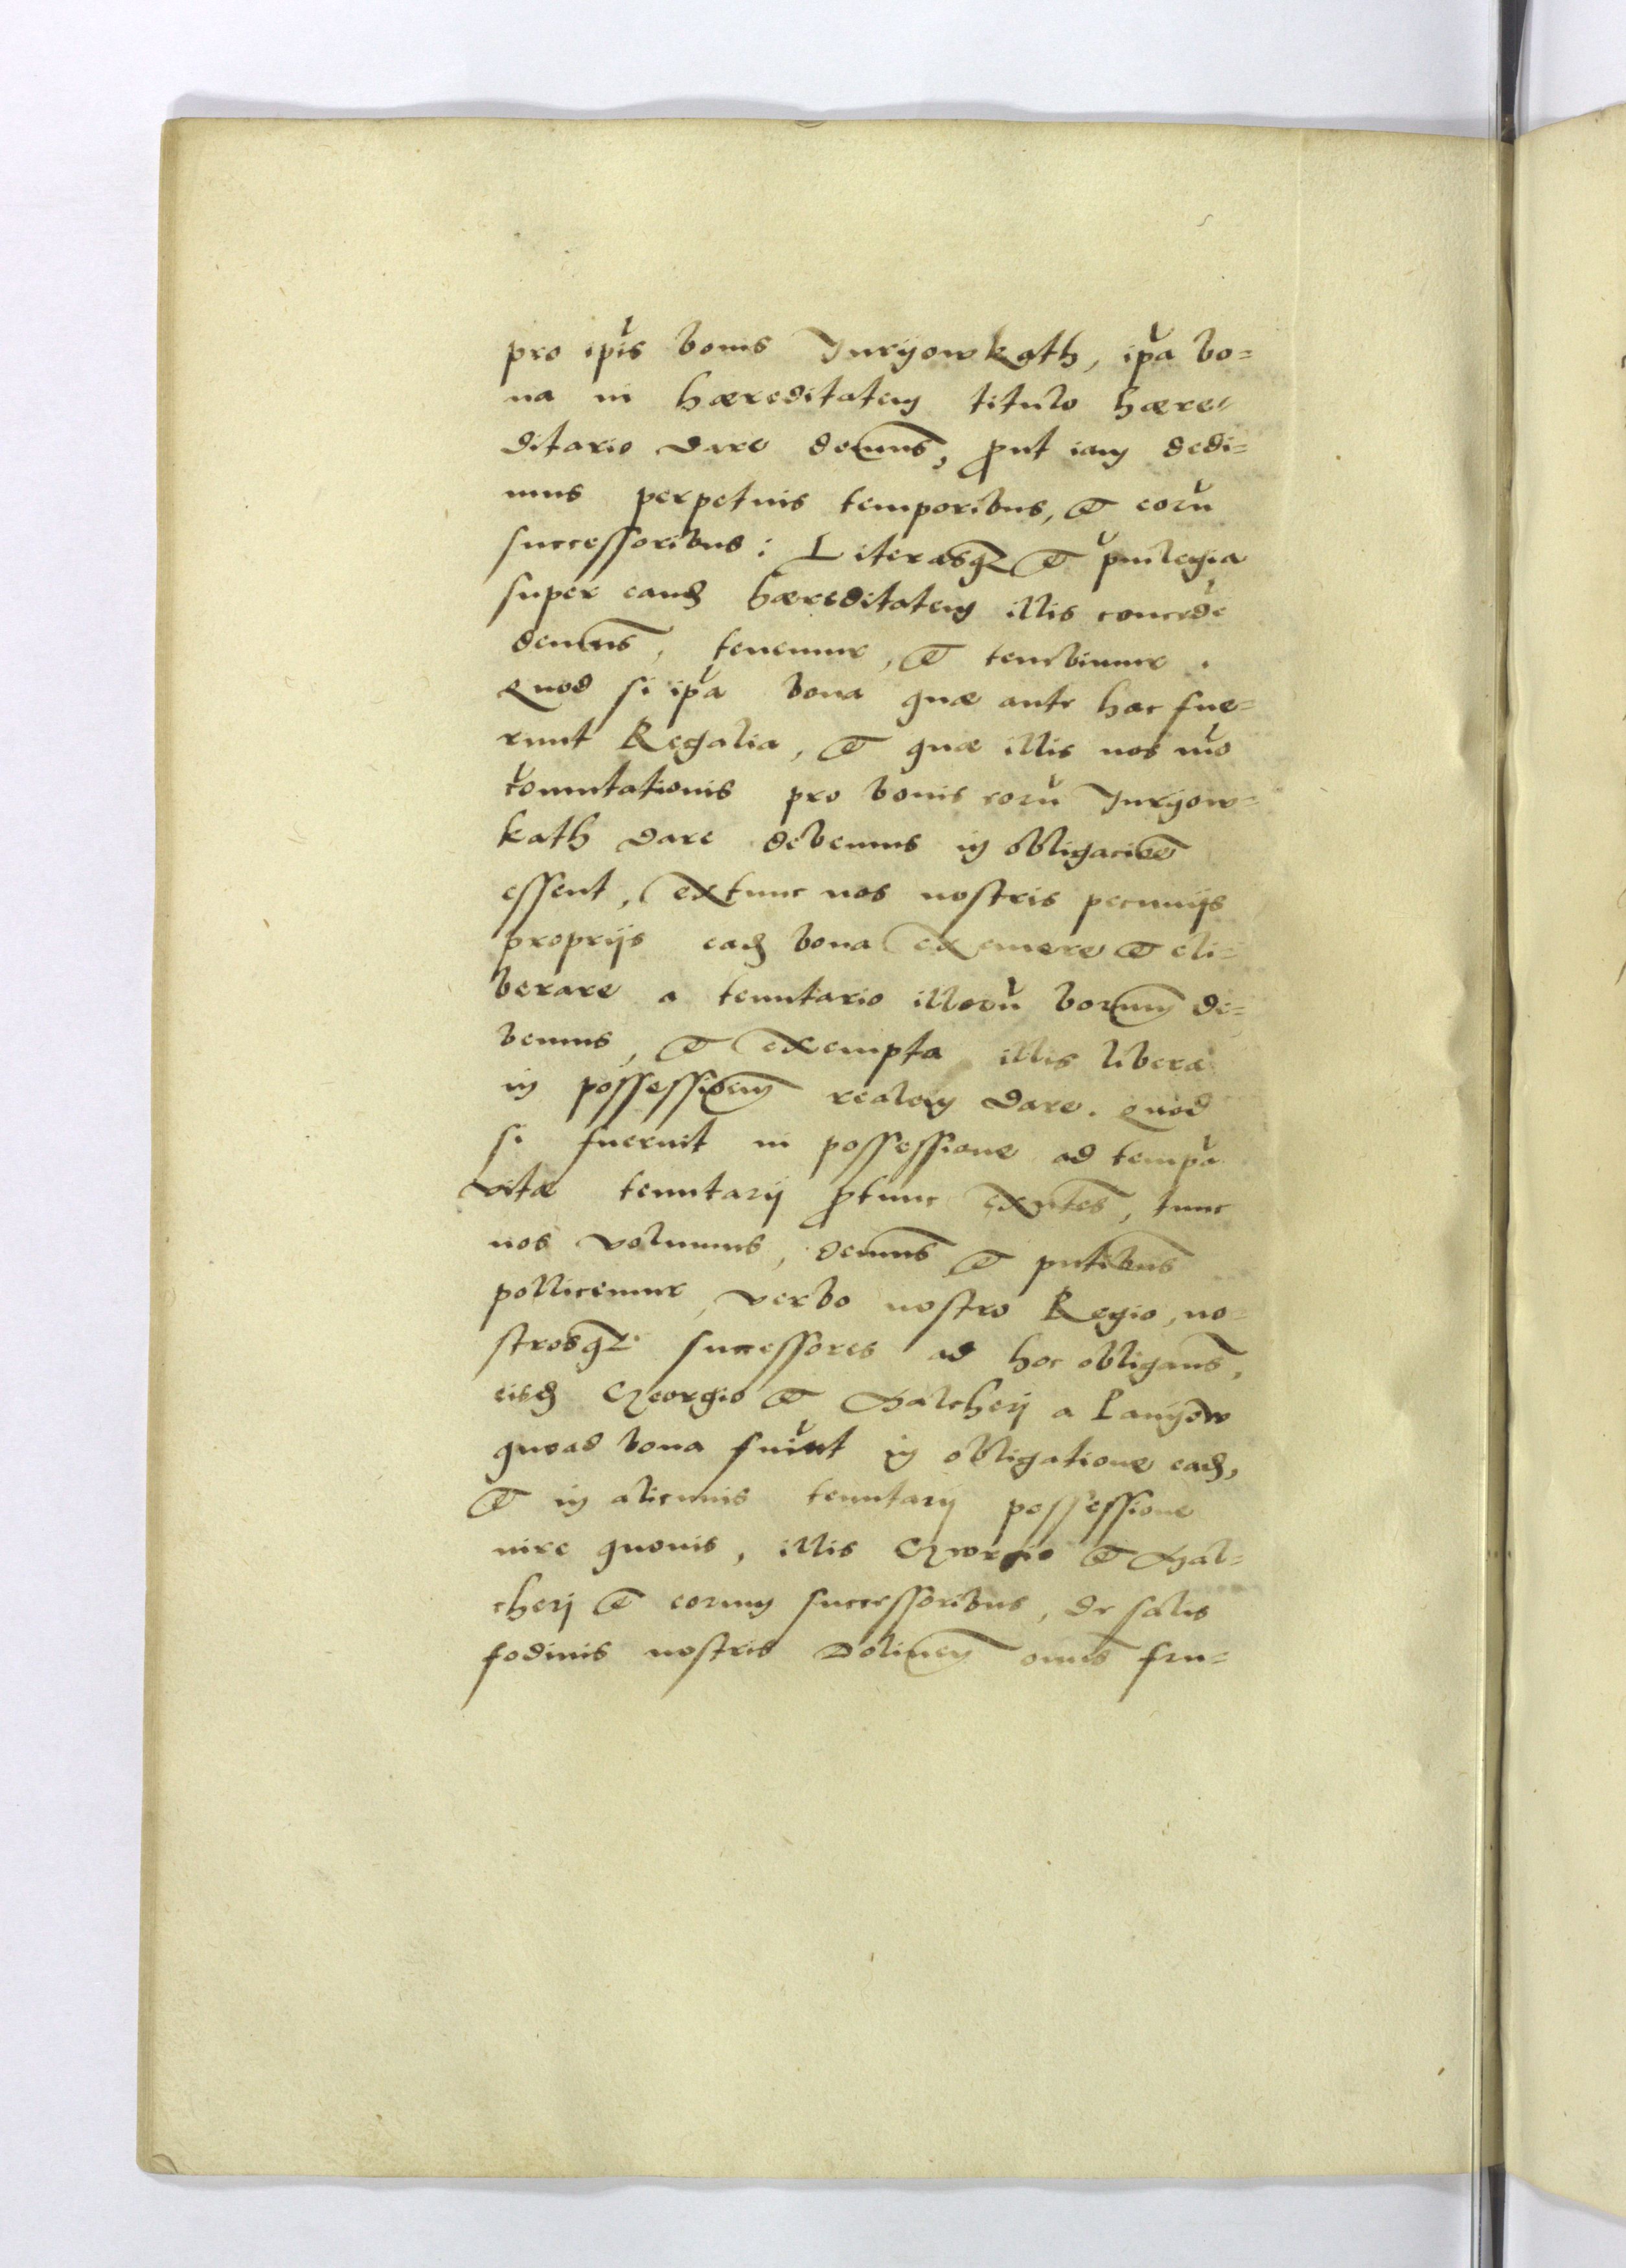 pro ip̃is bonis Juryowkath, ip̃a bo=
na in hæreditatem titulo hære=
ditario dare dem̃us, ꝓut iam dedi=
mus perpetuis temporibus, et eorũ
successoribus: Literasqꝫ et priũlegia
super eand hæreditatem illis concedẽ
dem̃us, tenemur, et tenebimur.
Quod si ip̃a bona quæ ante hac fue=
runt Regalia, et quæ illis nos mõ
com̃utationis pro bonis eorũ Juryow=
kath dare debemus in obligacion̄e
essent, extunc nos nostris pecunijs
proprijs ead bona exemere et eli=
berare a tenutario illorũ bonorum de=
bemus, et exempta illis libera
in possessionem realem dare. Quod
si fuerint in possessione ad temp̃a
vitæ tenutarij ꝓtunc exñtes, tunc
nos volumus, dem̃us et pñtibus
pollicemur, verbo nostro Regio, no=
strosqꝫ successores ad hoc obligan̄s,
eisd Georgio et Chalcherj a Lanyow
quoad bona fuĩnt in obligatione ead,
et in alicuius tenutarij possessione
iure quouis, illis Georgio et Chal=
cherj et eorum successoribus, de salis
fodinis nostris Dolinen̄ om̄s fru=